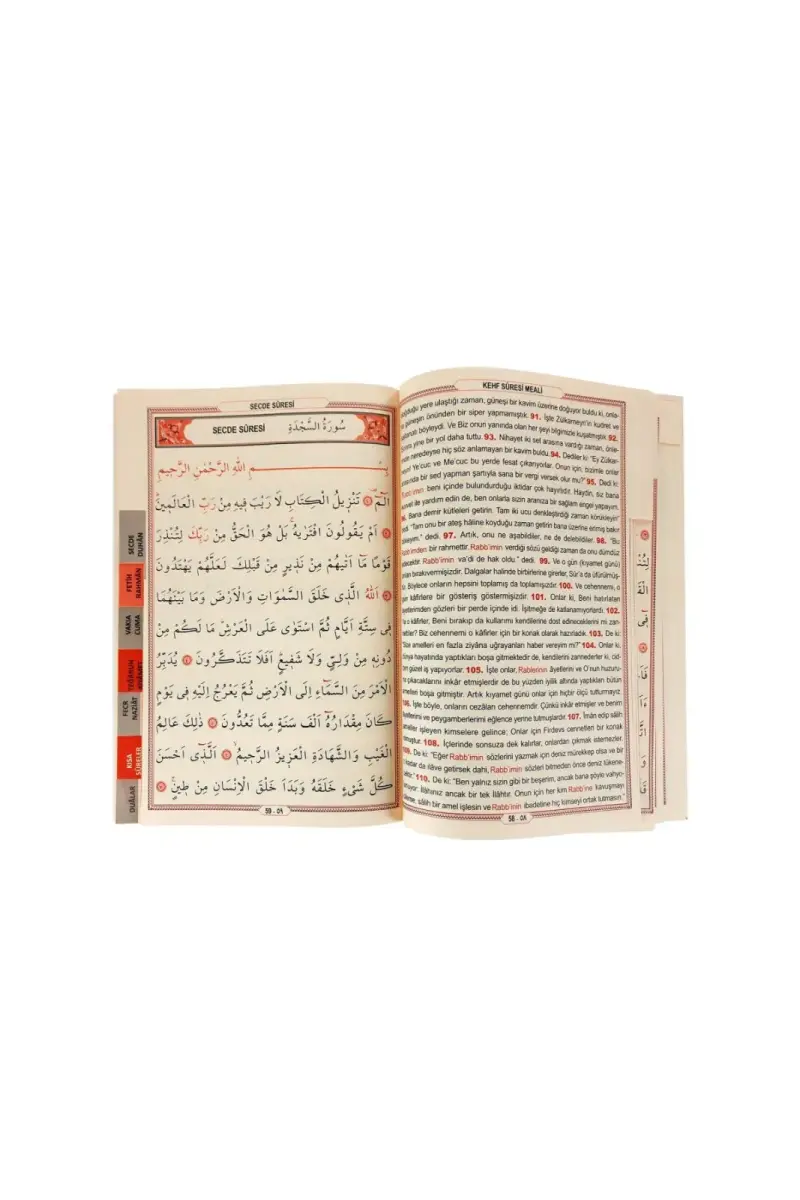 KEHF SÛRESİ MEALİ
doğduğu yere ulaştığı zaman, güneşi bir kavim üzerine doğuyor buldu ki, onla-
güneşin önünden bir siper yapmamıştık. 91. İşte Zülkarneyn'in kudret ve
saltanatı böyleydi. Ve Biz onun yanında olan her şeyi bilgimizle kuşatmıştık. 92.
yine bir yol daha tuttu. 93. Nihayet iki set arasına vardığı zaman, önle-
neredeyse hiç söz anlamayan bir kavim buldu. 94. Dediler ki: "Ey Zülkar-
Ye'cuc ve Me'cuc bu yerde fesat çıkarıyorlar. Onun için; bizimle onlar
arasında bir sed yapman şartıyla sana bir vergi versek olur mu?" 95. Dedi ki:
"Rabb'imin beni içinde bulundurduğu iktidar çok hayırlıdır. Haydin, siz bana
kuvvet ile yardım edin de, ben onlarla sizin aranıza bir sağlam engel yapayım."
96. Bana demir kütleleri getirin. Tam iki ucu denkleştirdiği zaman körükleyin"
dedi. "Tam onu bir ateş hâline koyduğu zaman getirin bana üzerine erimiş bakır
dökeyim," dedi. 97. Artık, onu ne aşabildiler, ne de delebildiler. 98. "Bu
Rabb'imden bir rahmettir. Rabb'imin verdiği sözü geldiği zaman da onu dümdüz
edecektir. Rabb'imin va'di de hak oldu." dedi. 99. Ve o gün (kıyamet günü)
bırakıvermişizdir. Dalgalar halinde birbirlerine girerler, Sûr'a da üfürülmüş-
tür. Böylece onların hepsini toplamış da toplamışızdır. 100. Ve cehennemi, o
gün kâfirlere bir gösteriş göstermişizdir. 101. Onlar ki, Beni hatırlatan
âyetlerimden gözleri bir perde içinde idi. İşitmeğe de katlanamıyorlardı. 102.
Ya o kâfirler, Beni bırakıp da kullarımı kendilerine dost edineceklerini mi zan-
nettiler? Biz cehennemi o kâfirler için bir konak olarak hazırladık. 103. De ki:
"Size amelleri en fazla ziyâna uğrayanları haber vereyim mi?" 104. Onlar ki,
dünya hayatında yaptıkları boşa gitmektedir de, kendilerini zannederler ki, cid-
den güzel iş yapıyorlar. 105. İşte onlar, Rablerinin âyetlerini ve O'nun huzuru-
na çıkacaklarını inkâr etmişlerdir de bu yüzden iyilik altında yaptıkları bütün
amelleri boşa gitmiştir. Artık kıyamet günü onlar için hiçbir ölçü tutturmayız.
106. İşte böyle, onların cezâları cehennemdir. Çünkü inkâr etmişler ve benim
âyetlerimi ve peygamberlerimi eğlence yerine tutmuşlardır. 107. İmân edip sâlih
ameller işleyen kimselere gelince; Onlar için Firdevs cennetleri bir konak
olmuştur. 108. İçlerinde sonsuza dek kalırlar, onlardan çıkmak istemezler.
109. De ki: "Eğer Rabb'imin sözlerini yazmak için deniz mürekkep olsa ve bir
o kadar da ilâve getirsek dahi, Rabb'imin sözleri bitmeden önce deniz tükene-
cektir." 110. De ki: "Ben yalnız sizin gibi bir beşerim, ancak bana şöyle vahyo-
lunuyor: İlâhınız ancak bir tek İlâhtır. Onun için her kim Rabb'ine kavuşmayı
dilerse, sâlih bir amel işlesin ve Rabb'inin ibadetine hiç kimseyi ortak tutmasın."
58 - ٥٨
SECDE SÛRESİ
SECDE SÛRESİ سُورَةُ السَّجْدَةِ
بِسْمِ اللّٰهِ الرَّحْمٰنِ الرَّحٖيمِ
الٓمٓ ۞ تَنْزٖيلُ الْكِتَابِ لَا رَيْبَ فٖيهِ مِنْ رَبِّ الْعَالَمٖينَ
۞ اَمْ يَقُولُونَ افْتَرٰيهُ بَلْ هُوَ الْحَقُّ مِنْ رَبِّكَ لِتُنْذِرَ
قَوْمًا مَٓا اَتٰيهُمْ مِنْ نَذٖيرٍ مِنْ قَبْلِكَ لَعَلَّهُمْ يَهْتَدُونَ
۞ اَللّٰهُ الَّذٖى خَلَقَ السَّمٰوَاتِ وَالْاَرْضَ وَمَا بَيْنَهُمَا
فٖى سِتَّةِ اَيَّامٍ ثُمَّ اسْتَوٰى عَلَى الْعَرْشِ مَا لَكُمْ مِنْ
دُونِهٖ مِنْ وَلِىٍّ وَلَا شَفٖيعٍ اَفَلَا تَتَذَكَّرُونَ ۞ يُدَبِّرُ
الْاَمْرَ مِنَ السَّمَٓاءِ اِلَى الْاَرْضِ ثُمَّ يَعْرُجُ اِلَيْهِ فٖى يَوْمٍ
كَانَ مِقْدَارُهُٓ اَلْفَ سَنَةٍ مِمَّا تَعُدُّونَ ۞ ذٰلِكَ عَالِمُ
الْغَيْبِ وَالشَّهَادَةِ الْعَزٖيزُ الرَّحٖيمُ ۞ اَلَّذٖٓى اَحْسَنَ
كُلَّ شَىْءٍ خَلَقَهُ وَبَدَاَ خَلْقَ الْاِنْسَانِ مِنْ طٖينٍ ۞
59 - ٥٩
SECDE
DUHÂN
FETİH
RAHMÂN
VAKIA
CUMA
TEĞABUN
FECR
NAZİÂT
KISA
SÛRELER
DUÂLAR